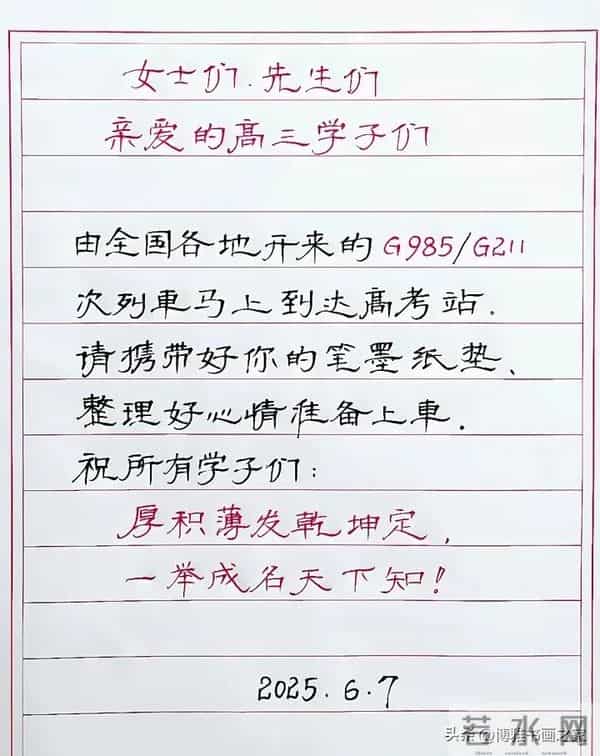 女士们.先生们
亲爱的高三学子们
由全国各地开来的G985/G211
次列車马上到达高考站.
请携带好你的笔墨纸垫、
整理好心情准备上車.
祝所有学子们:
厚积薄发乾坤定,
一举成名天下知!
2025.6.7
若水网